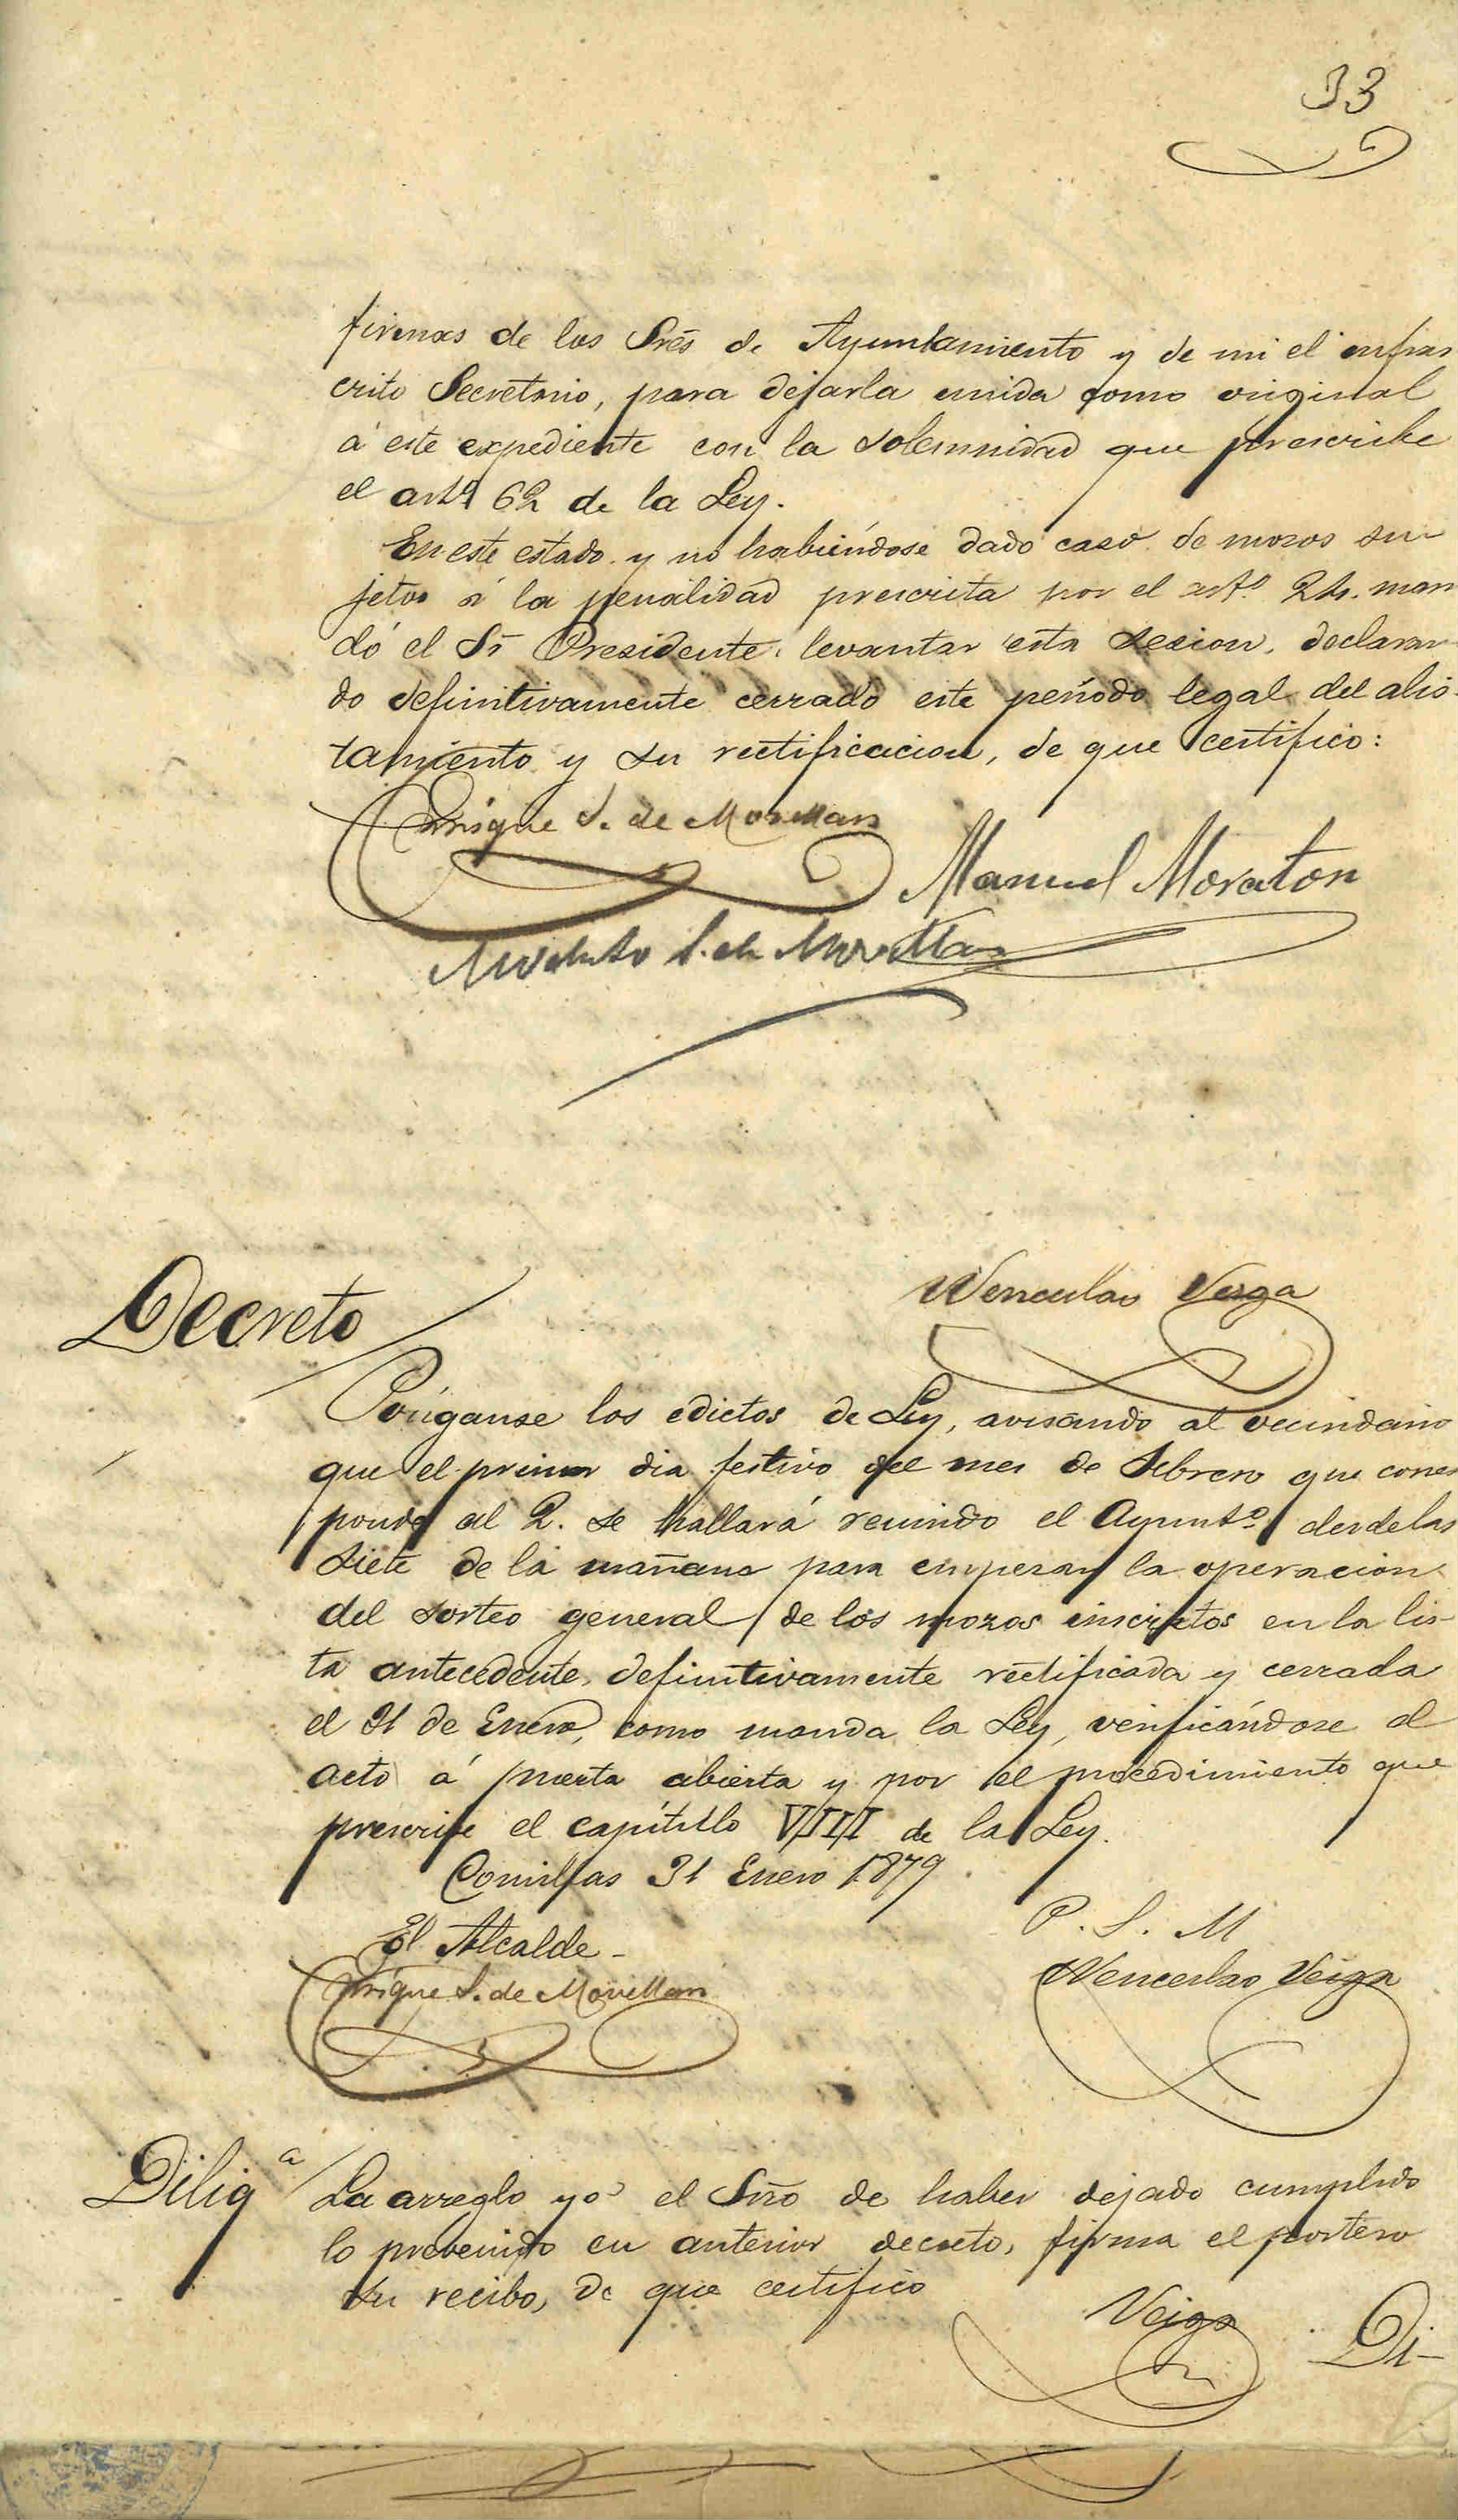 33
firmas de los Sres de Ayuntamiento y de mi el infras
crito Secretario, para dejarla unida como original
á este expediente con la solemnidad que prescribe
el artº 62 de la Ley.
En este estado y no habiéndose dado caso de mozos su-
jetos á la penalidad prescrita por el artº man
dó el Sr Presidente levantar esta sesion, declaran-
do definitivamente cerrado este período legal del alis-
tamiento y su rectificacion, de que certifico:
Enrique S. de Movellan
Manuel Moraton
Modesto S. de Movellan
Wenceslao Veiga
Decreto
Pónganse los edictos de Ley, avisando al vecindario
que el primer dia festivo del mes de Febrero que corres
ponde al 2. se hallará reunido el Ayuntº desde las
siete de la mañana para empezar la operacion
del sorteo general de los mozos inscriptos en la lis-
ta antecedente, definitivamente rectificada y cerrada
el 31 de Enero, como manda la Ley, verificándose el
acto á puerta abierta y por el procedimiento que
prescribe el capítulo VIII de la Ley.
Comillas 31 Enero 1879
El Alcalde
P. S. M
Enrique S. de Movellan
Wenceslao Veiga
Diligª
La arreglo yo el Srio de haber dejado cumplido
lo prevenido en anterior decreto, firma el portero
su recibo, de que certifico
Veiga
Di-